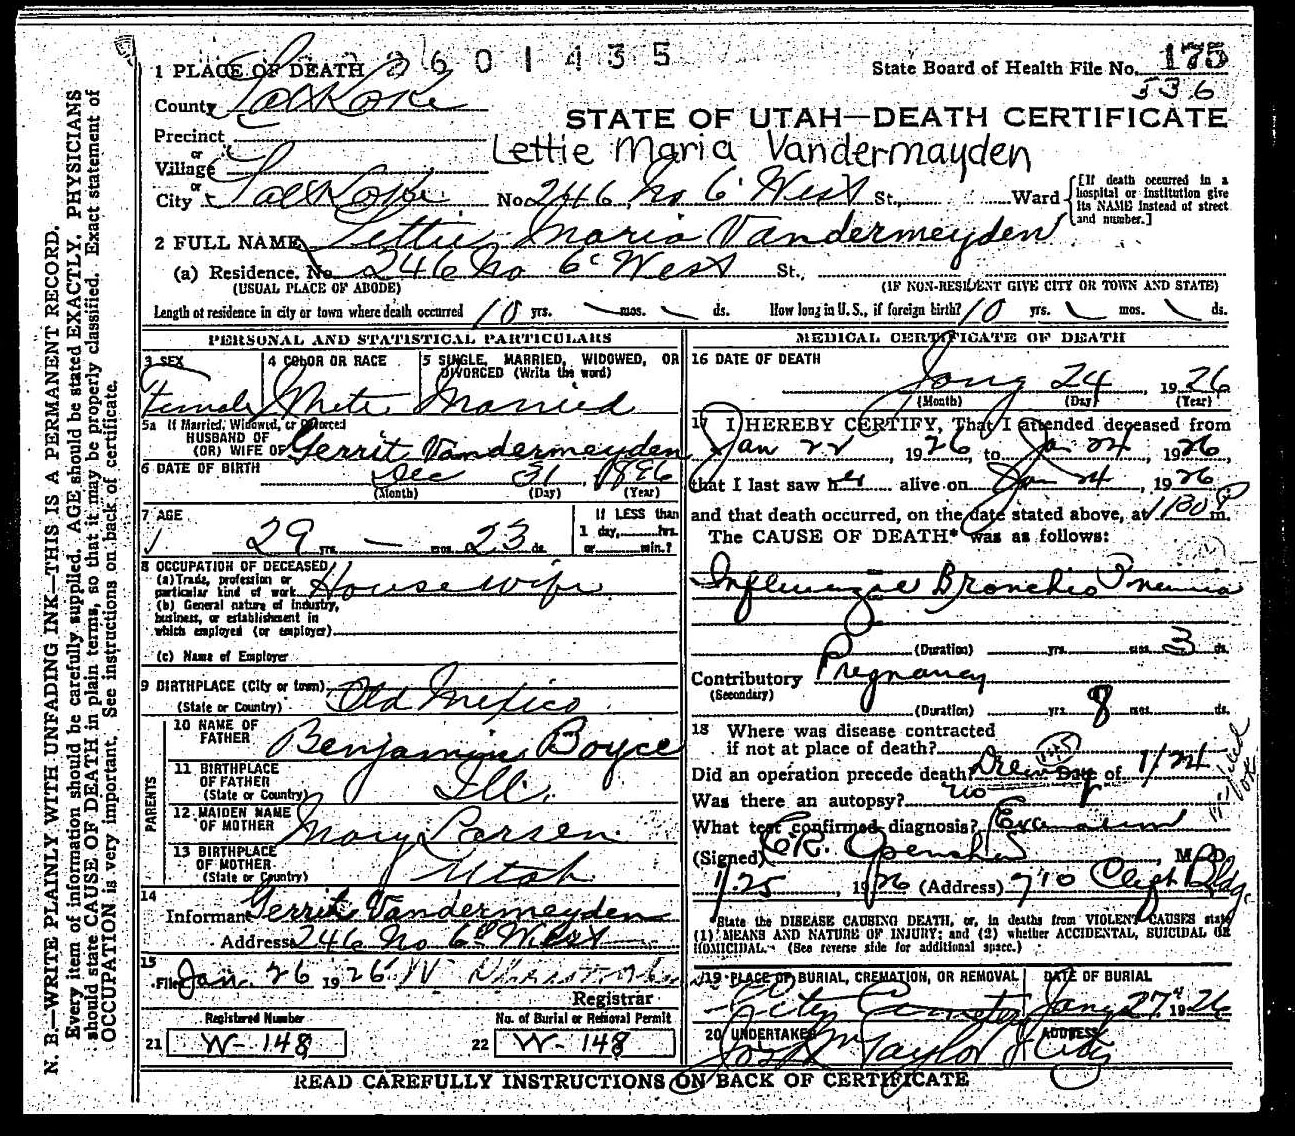 N. B.—WRITE PLAINLY WITH UNFADING INK—THIS IS A PERMANENT RECORD.
Every item of information should be carefully supplied. AGE should be stated EXACTLY. PHYSICIANS
should state CAUSE OF DEATH in plain terms, so that it may be properly classified. Exact statement of
OCCUPATION is very important. See instructions on back of certificate.
2601435
1 PLACE OF DEATH
State Board of Health File No. 175
336
County Salt Lake
STATE OF UTAH—DEATH CERTIFICATE
Precinct
Lettie Maria Vandermayden
or
Village
or
City Salt Lake No. 246 No 6 West St., Ward
[If death occurred in a
hospital or institution give
its NAME instead of street
and number.]
2 FULL NAME Lettie Maria Vandermeyden
(a) Residence, No. 246 No 6 West St.,
(USUAL PLACE OF ABODE) (IF NON-RESIDENT GIVE CITY OR TOWN AND STATE)
Length of residence in city or town where death occurred 10 yrs. mos. ds. How long in U. S., if foreign birth? 10 yrs. mos. ds.
PERSONAL AND STATISTICAL PARTICULARS
3 SEX 4 COLOR OR RACE 5 SINGLE, MARRIED, WIDOWED, OR
DIVORCED (Write the word)
Female White Married
5a If Married, Widowed, or Divorced
HUSBAND OF
(OR) WIFE OF Gerrit Vandermeyden
6 DATE OF BIRTH Dec 31 1896
(Month) (Day) (Year)
7 AGE If LESS than
29 yrs. — mos. 23 ds. 1 day, hrs.
or min.?
8 OCCUPATION OF DECEASED
(a) Trade, profession or
particular kind of work Housewife
(b) General nature of industry,
business, or establishment in
which employed (or employer)
(c) Name of Employer
9 BIRTHPLACE (City or town)
(State or Country) Old Mexico
PARENTS
10 NAME OF
FATHER Benjamin Boyce
11 BIRTHPLACE
OF FATHER
(State or Country) Ill.
12 MAIDEN NAME
OF MOTHER Mary Larsen
13 BIRTHPLACE
OF MOTHER
(State or Country) Utah
14
Informant Gerrit Vandermeyden
Address 246 No 6th West
15
Filed Jan. 26 1926
Registrar
Registered Number No. of Burial or Removal Permit
21 W-148 22 W-148
MEDICAL CERTIFICATE OF DEATH
16 DATE OF DEATH
Jany 24, 1926
(Month) (Day) (Year)
17 I HEREBY CERTIFY, That I attended deceased from
Jan 22, 1926, to Jan 24, 1926,
that I last saw her alive on Jan 24, 1926
and that death occurred, on the date stated above, at 1130 P m.
The CAUSE OF DEATH* was as follows:
Influenzae Bronchio Pneumia
(Duration) yrs. mos. 3 ds.
Contributory Pregnancy
(Secondary)
(Duration) yrs. 8 mos. ds.
18 Where was disease contracted
if not at place of death?
Did an operation precede death? Date of 1/24
Was there an autopsy? no
What test confirmed diagnosis?
(Signed) M. D.
1/25, 1926 (Address) 710 Clift Bldg.
*State the DISEASE CAUSING DEATH, or, in deaths from VIOLENT CAUSES state
(1) MEANS AND NATURE OF INJURY; and (2) whether ACCIDENTAL, SUICIDAL OR
HOMICIDAL. (See reverse side for additional space.)
19 PLACE OF BURIAL, CREMATION, OR REMOVAL DATE OF BURIAL
City Cemetery Jany 27" 1926
20 UNDERTAKER ADDRESS
Taylor City
READ CAREFULLY INSTRUCTIONS ON BACK OF CERTIFICATE